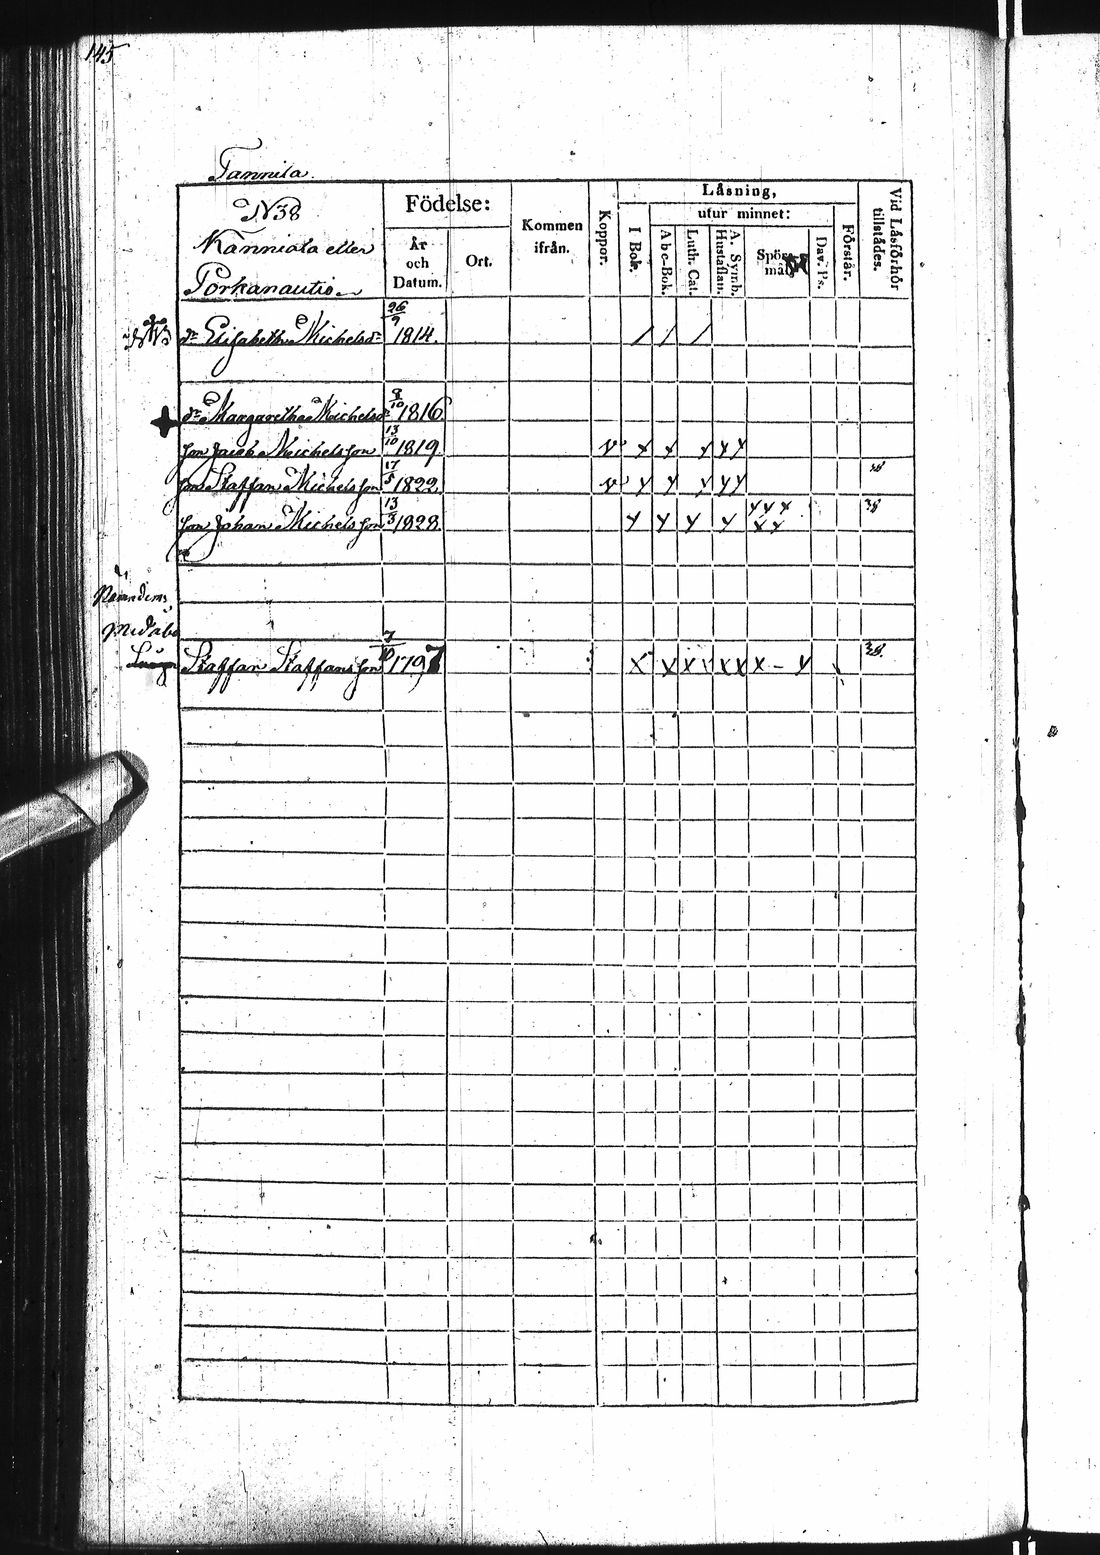 145
Tannila.
N38
Känniälä eller
Porkanautio
Födelse:
År
och
Datum.
Ort.
Kommen
ifrån.
Koppor.
Läsning,
I Bok.
utur minnet:
Abc-Bok.
Luth. Cat.
A. Symb.
Hustaflan.
Spörs-
mål
Dav. Ps.
Förstår.
Vid Läsförhör
tillstådes.
dr Elisabetha Michelsdr 26/9 1814. / / /
dr Margaretha Michelsdr 9/10 1816
son Jacob Michelsson 13/10 1819. v x x x x x
son Staffan Michelsson 17/5 1822. v x x x x x
son Johan Michelsson 13/3 1828. x x x x x x x x x 38
Staffan Staffansson 7/10 1797 x x x x x x x – x 38.